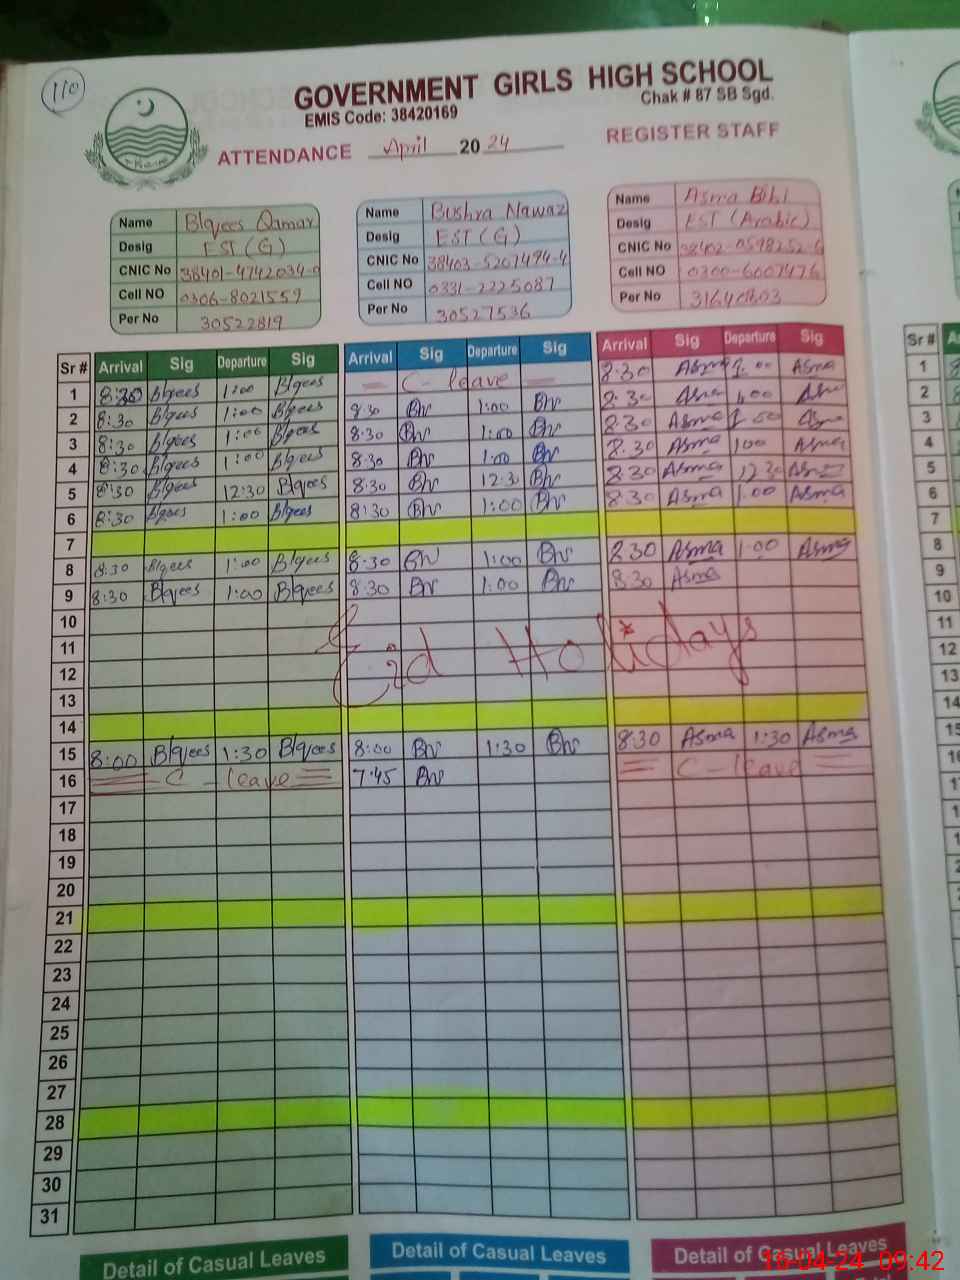 110
GOVERNMENT GIRLS HIGH SCHOOL
Chak # 87 SB Sgd.
EMIS Code: 38420169
ATTENDANCE April 2024 REGISTER STAFF
Name Blqees Qamar
Desig EST (G)
CNIC No 38401-4742034-0
Cell NO 0306-8021559
Per No 30522819
Name Bushra Nawaz
Desig EST (G)
CNIC No 38403-5207494-4
Cell NO 0331-2225087
Per No 30527536
Name Asma Bibi
Desig EST (Arabic)
CNIC No 38402-0598252-6
Cell NO 0300-6007476
Per No 31640803
Sr # Arrival Sig Departure Sig Arrival Sig Departure Sig Arrival Sig Departure Sig Sr #
1 8:30 Blqees 1:00 Blqees C-leave 8:30 Asma 1:00 Asma 1
2 8:30 Blqees 1:00 Blqees 8:30 Bn 1:00 Bn 8:30 Asma 1:00 Asma 2
3 8:30 Blqees 1:00 Blqees 8:30 Bn 1:00 Bn 8:30 Asma 1:00 Asma 3
4 8:30 Blqees 1:00 Blqees 8:30 Bn 1:00 Bn 8:30 Asma 1:00 Asma 4
5 8:30 Blqees 12:30 Blqees 8:30 Bn 12:30 Bn 8:30 Asma 12:30 Asma 5
6 8:30 Blqees 1:00 Blqees 8:30 Bn 1:00 Bn 8:30 Asma 1:00 Asma 6
7 7
8 8:30 Blqees 1:00 Blqees 8:30 Bn 1:00 Bn 8:30 Asma 1:00 Asma 8
9 8:30 Blqees 1:00 Blqees 8:30 Bn 1:00 Bn 8:30 Asma 9
10 10
11 Eid Holidays 11
12 12
13 13
14 14
15 8:00 Blqees 1:30 Blqees 8:00 Bn 1:30 Bn 8:30 Asma 1:30 Asma 15
16 C-leave 7:45 Bn C-leave 16
17
18
19
20
21
22
23
24
25
26
27
28
29
30
31
Detail of Casual Leaves Detail of Casual Leaves Detail of Casual Leaves
16-04-24 09:42